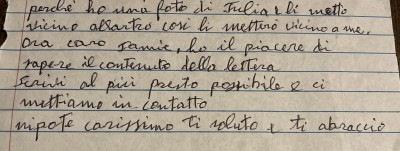 perché ho una foto di Julia e li metto
vicino all'altro così li metterò vicino a me..
Ora caro Jamie, ho il piacere di
sapere il contenuto della lettera
scrivi al più presto possibile e ci
mettiamo in contatto
nipote carissimo ti saluto e ti abraccio